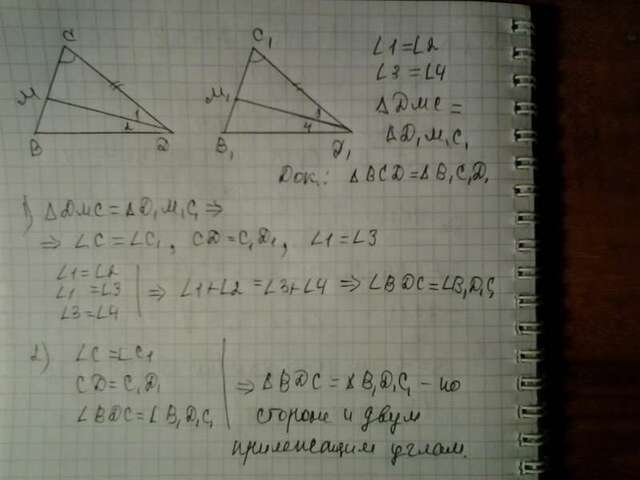 C
M
1
2
B
D
C₁
M₁
3
4
B₁
D₁
∠1=∠2
∠3=∠4
△DMC=
△D₁M₁C₁
Док.: △BCD=△B₁C₁D₁
1) △DMC=△D₁M₁C₁ ⇒
⇒ ∠C=∠C₁, CD=C₁D₁, ∠1=∠3
∠1=∠2
∠1=∠3
∠3=∠4
⇒ ∠1+∠2=∠3+∠4 ⇒ ∠BDC=∠B₁D₁C₁
2) ∠C=∠C₁
CD=C₁D₁
∠BDC=∠B₁D₁C₁
⇒ △BDC=△B₁D₁C₁ – по
стороне и двум
прилежащим углам.